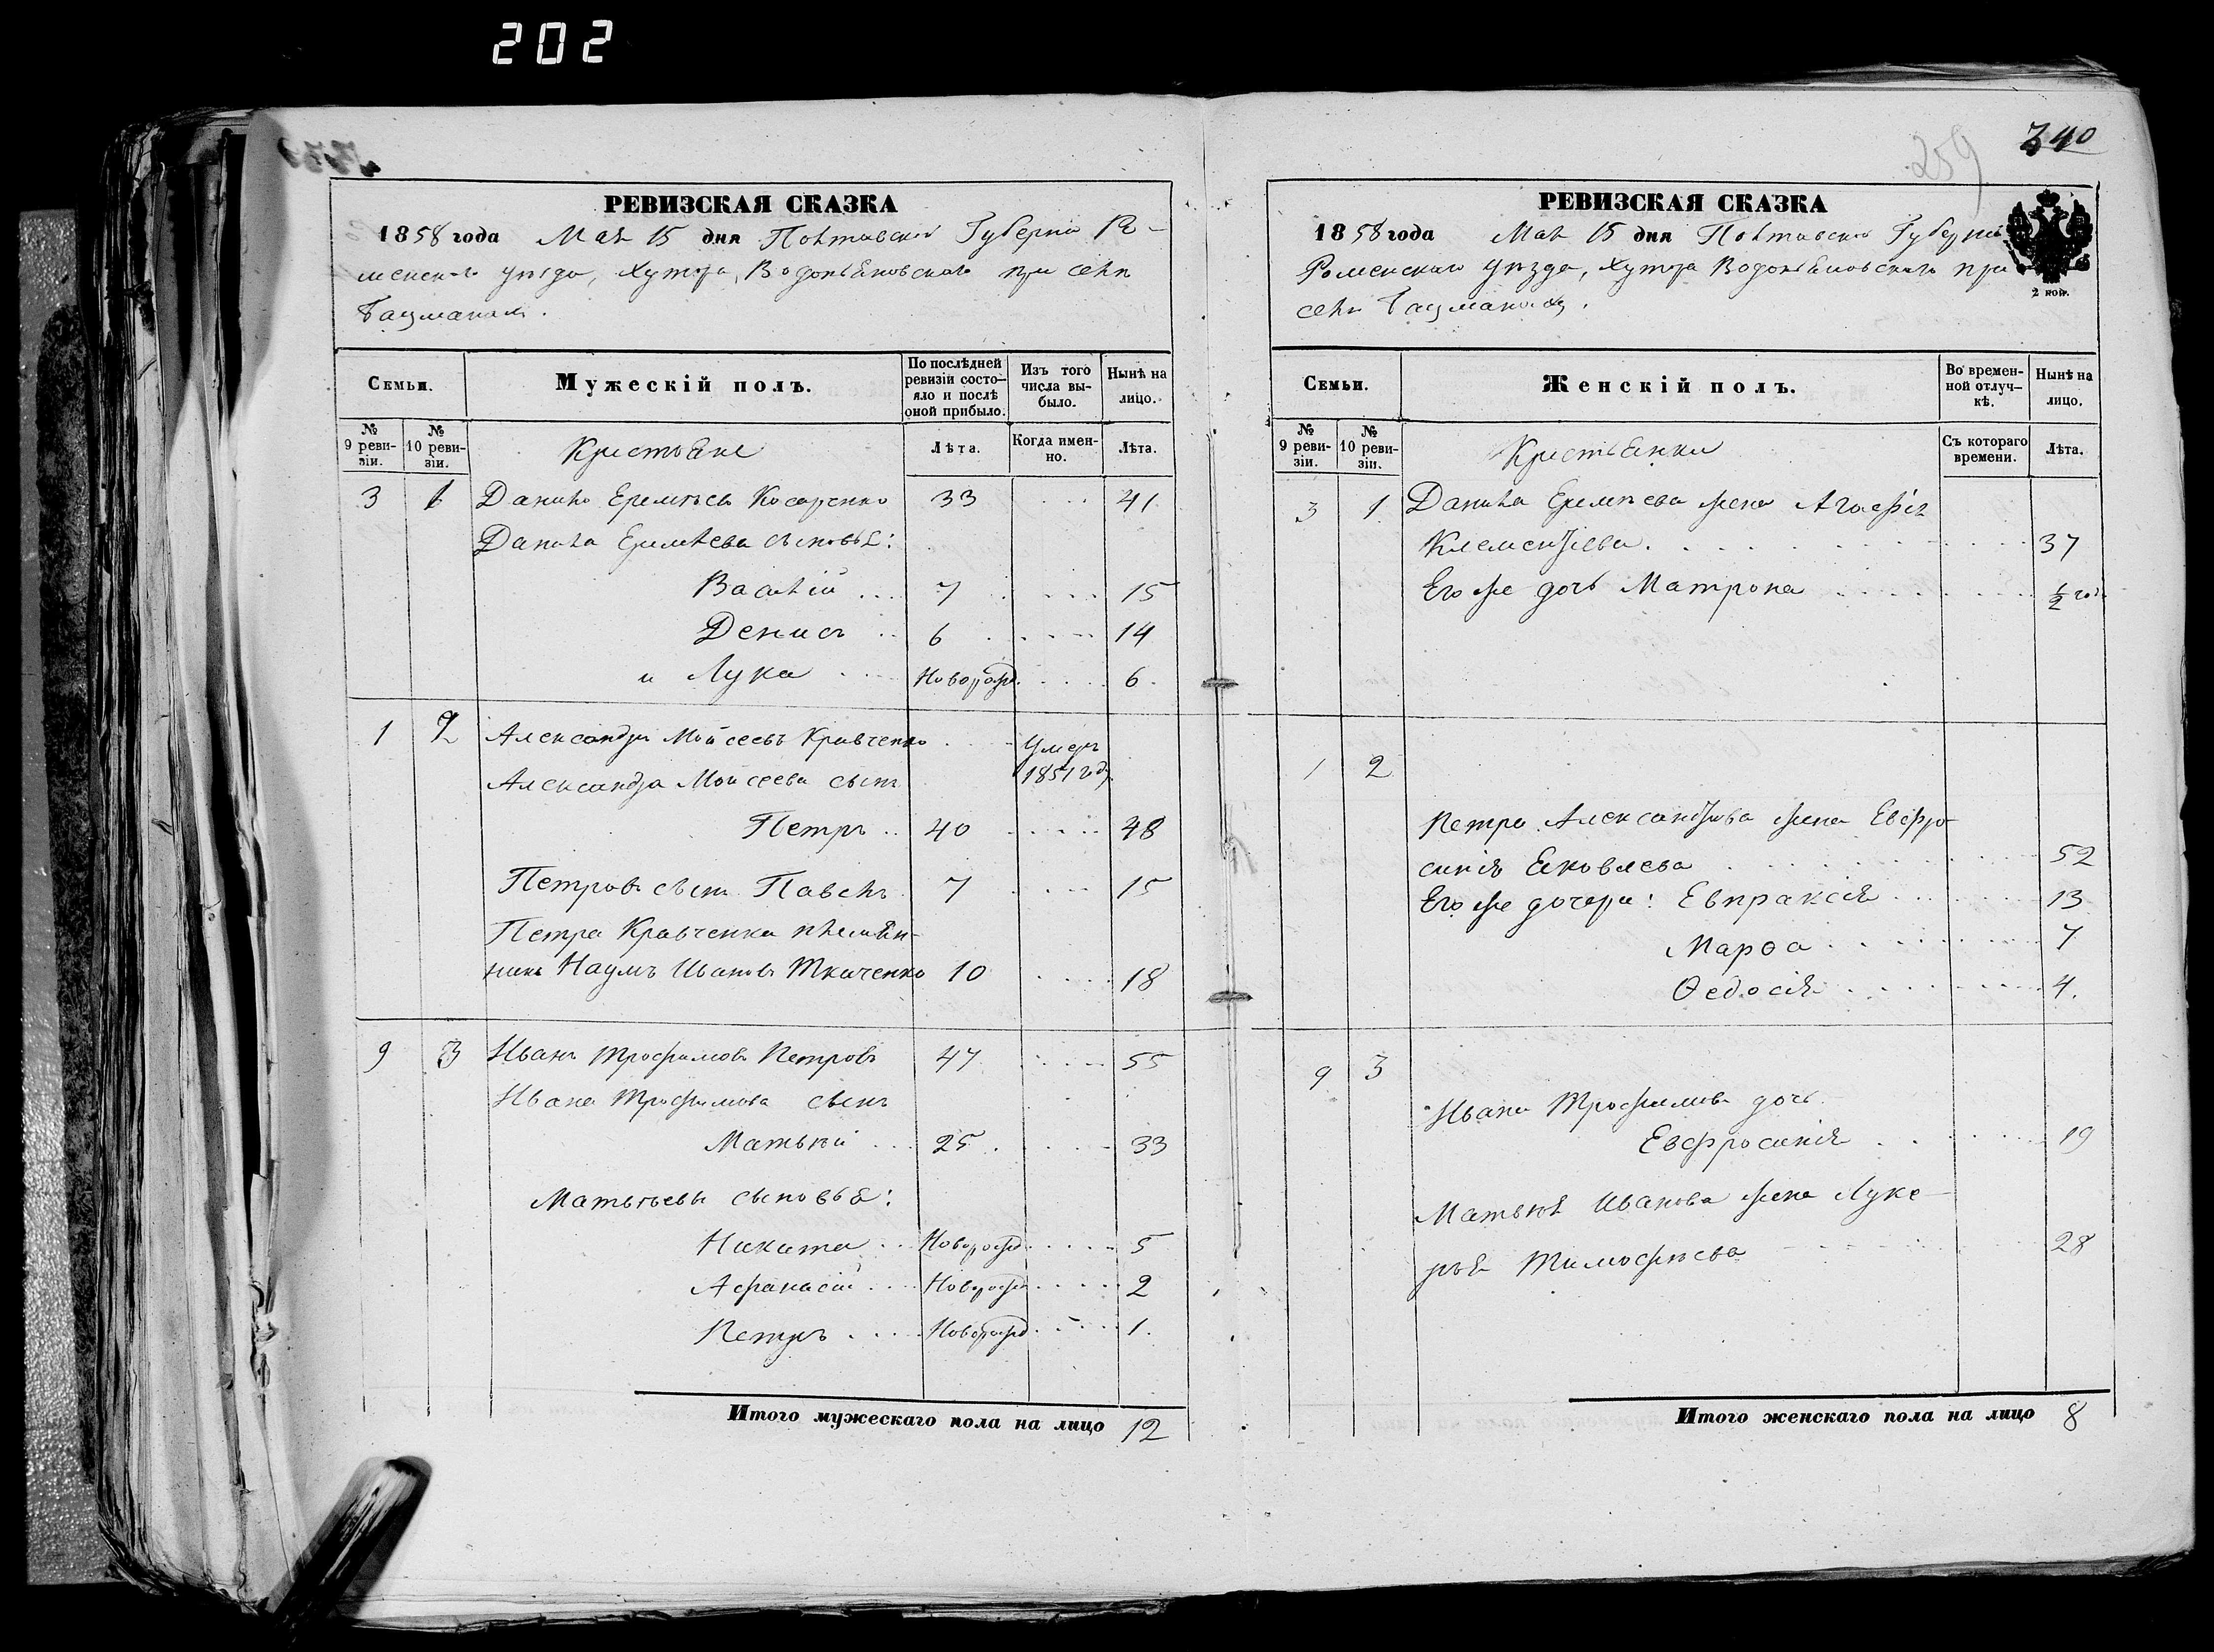 202
340
259
РЕВИЗСКАЯ СКАЗКА
1858 года Мая 15 дня Полтавской Губерніи Ро-
менскаго уѣзда, Хутора, Водопьяновскаго при селѣ
Бацманахъ.
Семьи.
Мужескій полъ.
По послѣдней ревизіи состо-
яло и послѣ оной прибыло.
Изъ того числа вы-
было.
Нынѣ на лицо.
№ 9 реви-
зіи.
№ 10 реви-
зіи.
Крестьяне
Лѣта.
Когда имен-
но.
Лѣта.
3 1 Данило Еремѣевъ Косаренко 33 41
Данила Еремѣева сыновья:
Василій 7 15
Денисъ 6 14
и Лука Новорожд. 6
1 2 Александръ Мойсеевъ Кравченко Умеръ
1851 году
Александра Мойсеева сынъ
Петръ 40 48
Петровъ сынъ Павелъ 7 15
Петра Кравченка племян-
никъ Наумъ Ивановъ Ткаченко 10 18
9 3 Иванъ Трофимовъ Петровъ 47 55
Ивана Трофимова сынъ
Матвѣй 25 33
Матвѣевы сыновья:
Никита Новорожд. 5
Афанасій Новорожд. 2
Петръ Новорожд. 1.
Итого мужескаго пола на лицо 12
РЕВИЗСКАЯ СКАЗКА
1858 года Мая 15 дня Полтавской Губерніи
Роменскаго уѣзда, Хутора Водопьяновскаго при
селѣ Бацманахъ.
2 коп.
Семьи.
Женскій полъ.
Во времен-
ной отлуч-
кѣ.
Нынѣ на лицо.
№ 9 реви-
зіи.
№ 10 реви-
зіи.
Крестьянки
Съ котораго времени.
Лѣта.
3 1 Данила Еремѣева жена Агафія
Клементіева 37
Его же дочь Матрона ½ года
1 2
Петра Александрова жена Евфро-
синія Яковлева 52
Его же дочери: Евпраксія 13
Марѳа 7
Ѳедосія 4.
9 3
Ивана Трофимова дочь
Евфросинія 19
Матвѣя Иванова жена Луке-
рья Тимофѣева 28
Итого женскаго пола на лицо 8